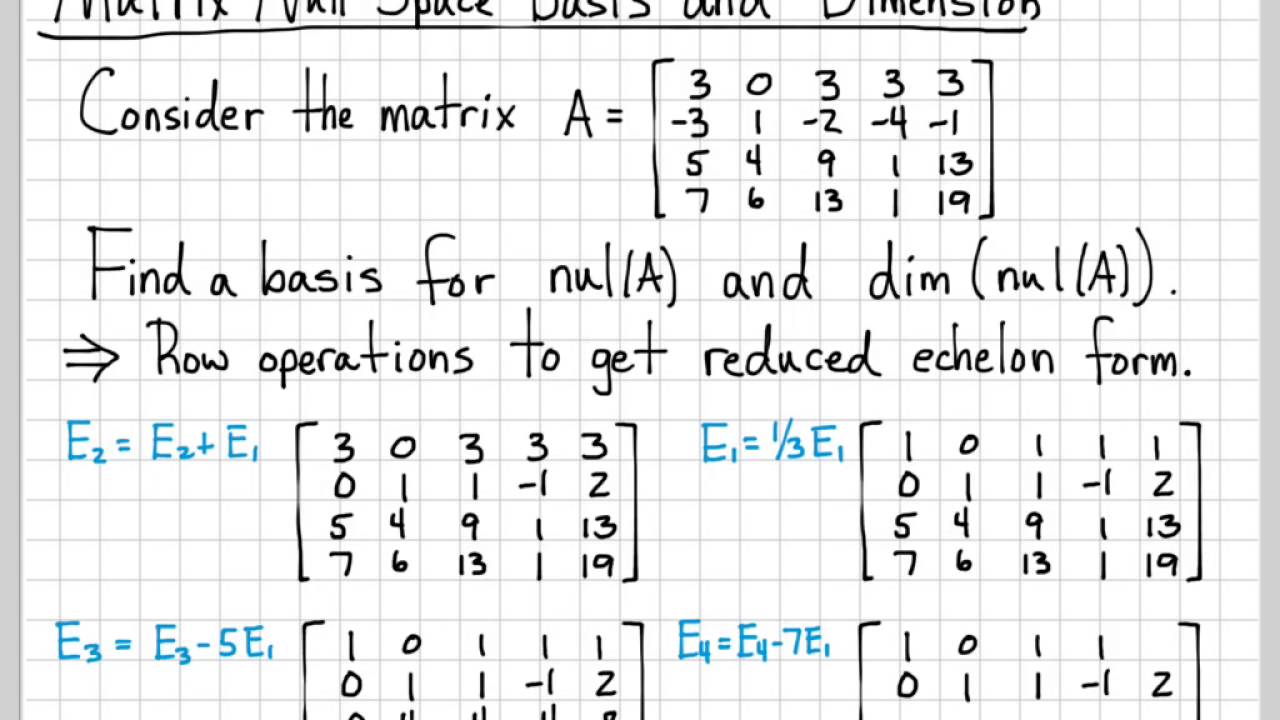 Matrix Null Space Basis and Dimension
Consider the matrix A = [
3 0 3 3 3
-3 1 -2 -4 -1
5 4 9 1 13
7 6 13 1 19
]
Find a basis for nul(A) and dim(nul(A)).
⇒ Row operations to get reduced echelon form.
E₂ = E₂ + E₁ [
3 0 3 3 3
0 1 1 -1 2
5 4 9 1 13
7 6 13 1 19
]
E₁ = 1/3 E₁ [
1 0 1 1 1
0 1 1 -1 2
5 4 9 1 13
7 6 13 1 19
]
E₃ = E₃ - 5E₁ [
1 0 1 1 1
0 1 1 -1 2
]
E₄ = E₄ - 7E₁ [
1 0 1 1
0 1 1 -1 2
]